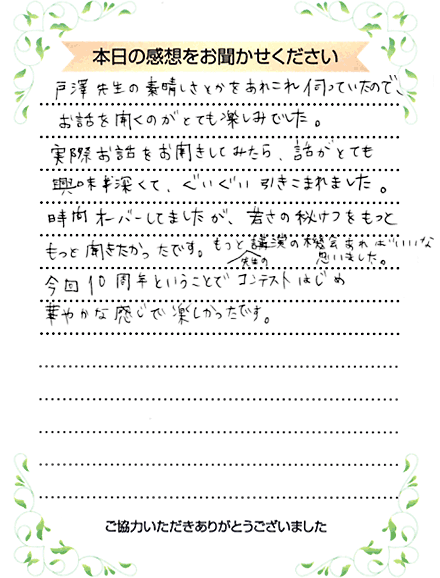 本日の感想をお聞かせください
戸澤先生の素晴しさとかをあれこれ伺っていたので、
お話を聞くのがとても楽しみでした。
実際お話をお聞きしてみたら、話がとても
興味半深くて、ぐいぐい引きこまれました。
時間オーバーしてましたが、若さの秘けつをもっと
もっと聞きたかったです。もっと先生の講演の機会あればいいな
思いました。
今回10周年ということでコンテストはじめ
華やかな感じで楽しかったです。
ご協力いただきありがとうございました